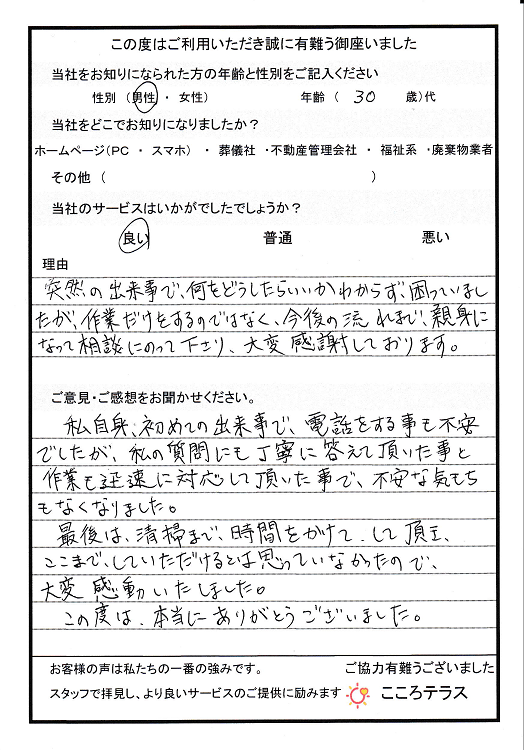 この度はご利用いただき誠に有難う御座いました
当社をお知りになられた方の年齢と性別をご記入ください
性別（男性 ・ 女性） 年齢（ 30 歳）代
当社をどこでお知りになりましたか？
ホームページ（PC ・ スマホ） ・ 葬儀社 ・不動産管理会社 ・ 福祉系 ・廃棄物業者
その他（ ）
当社のサービスはいかがでしたでしょうか？
良い 普通 悪い
理由
突然の出来事で、何をどうしたらいいかわからず、困っていまし
たが、作業だけをするのではなく、今後の流れまで、親身に
なって相談にのって下さり、大変感謝しております。
ご意見・ご感想をお聞かせください。
私自身、初めての出来事で、電話をする事も不安
でしたが、私の質問にも丁寧に答えて頂いた事と
作業も迅速に対応して頂いた事で、不安な気もち
もなくなりました。
最後は、清掃まで、時間をかけて、して頂き、
ここまで、していただけるとは思っていなかったので、
大変感動いたしました。
この度は、本当にありがとうございました。
お客様の声は私たちの一番の強みです。 ご協力有難うございました
スタッフで拝見し、より良いサービスのご提供に励みます こころテラス